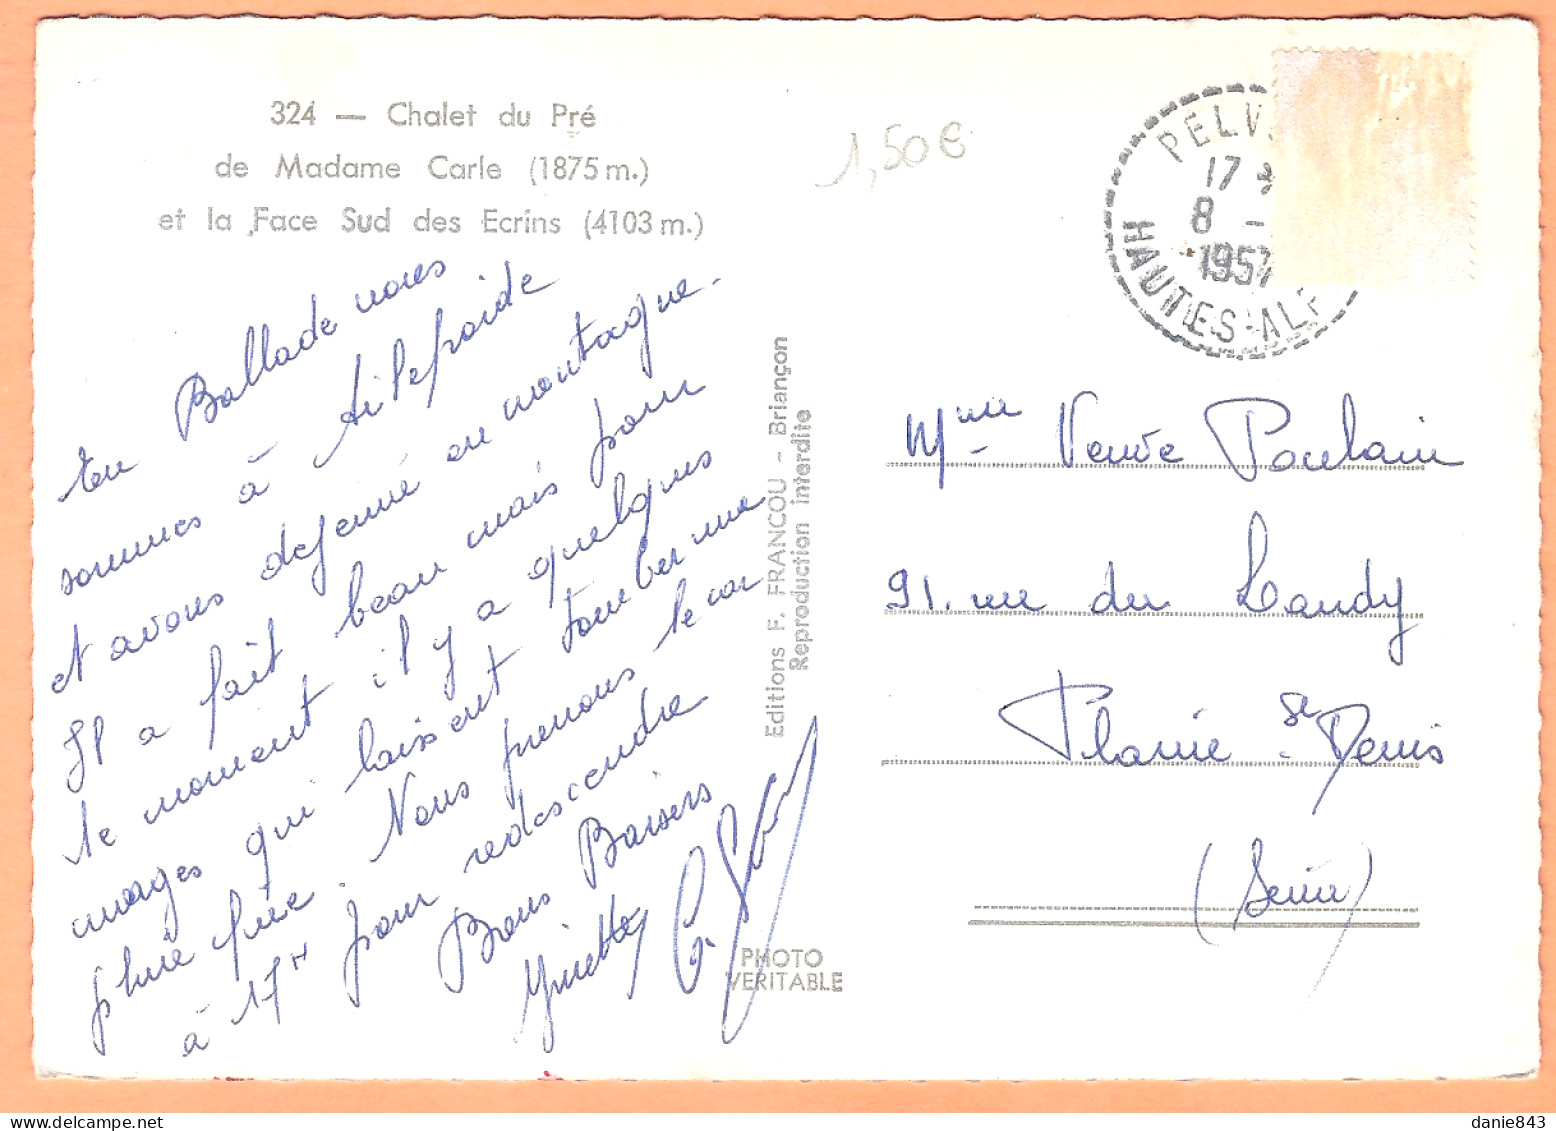 324 — Chalet du Pré
de Madame Carle (1875 m.)
et la Face Sud des Ecrins (4103 m.)
1,50€
PELV
17
8 -
1957
HAUTES-ALP
en Ballade nous
sommes à Ailefroide
et avons dejeuné en montagne.
Il a fait beau mais pour
le moment il y a quelques
nuages qui laissent tomber une
pluie fine. Nous prenons le car
à 17H pour redescendre
Bons Baisers
Ginette
Editions F. FRANCOU - Briançon
Reproduction interdite
PHOTO
VERITABLE
Mme Veuve Poulain
91. rue du Landy
Plaine St Denis
(Seine)
danie843